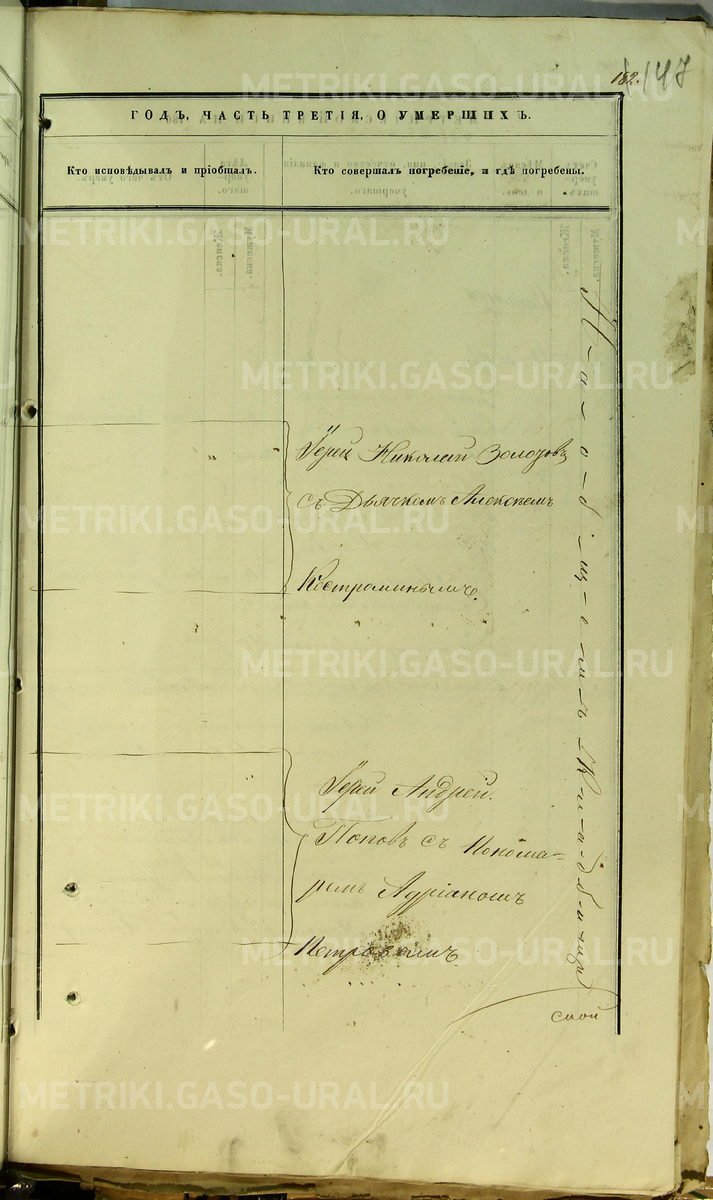 182. 147
ГОДЪ, ЧАСТЬ ТРЕТІЯ, О УМЕРШИХЪ.
Кто исповѣдывалъ и пріобщалъ.
Кто совершалъ погребеніе, и гдѣ погребены.
Іерей Николай
съ Дьячкомъ Алексѣемъ
Костроминымъ.
Іерей Андрей
Поповъ съ Понома=
ремъ Адріаномъ
Петровымъ.
На общемъ кладбищѣ
METRIKI.GASO-URAL.RU